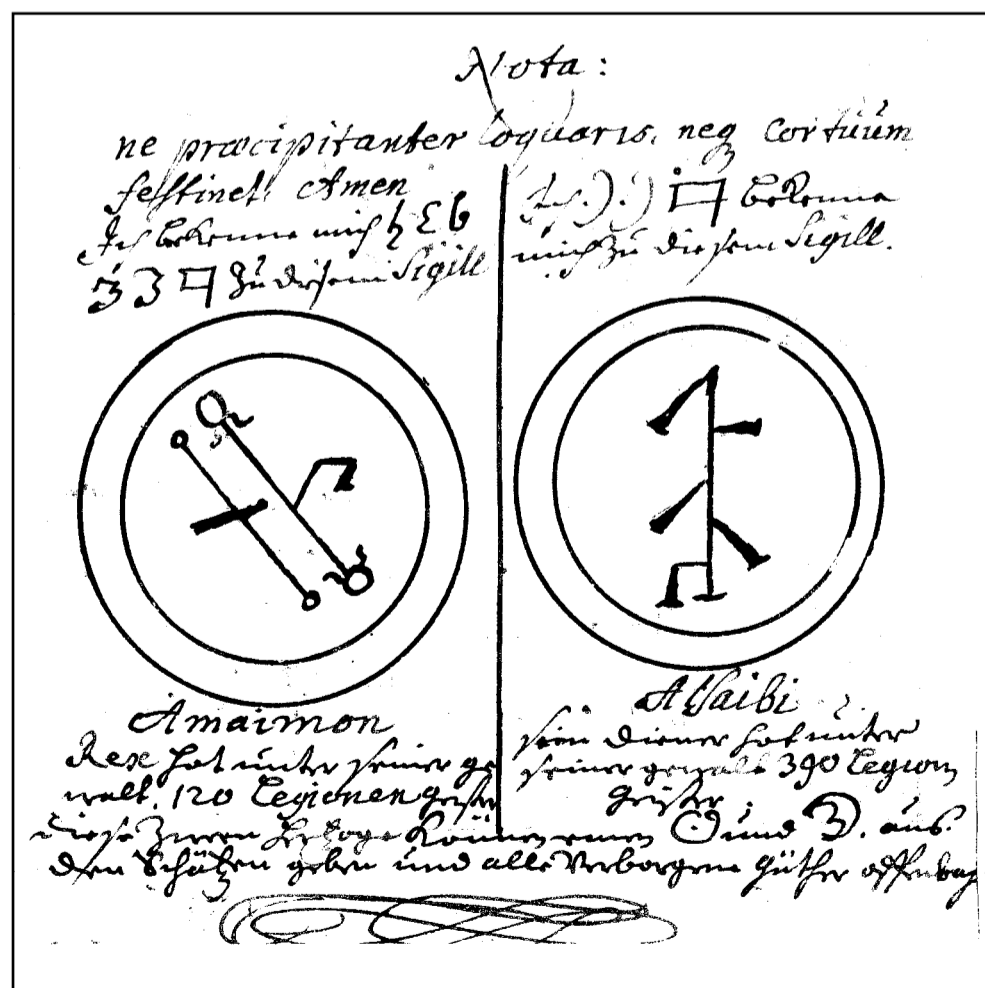 Nota:
ne præcipitanter loquaris, neq cor tuum
festinet. Amen
Ich bekenne mich
zu diesem Sigill
Ich bekenne
mich zu diesem Sigill.
Amaimon
Rex hat unter seiner ge
walt. 120 Legionen geister
sein diener hat unter
seiner gewalt 390 Legion
geister:
diese zween können einen und aus
den Schätzen geben und alle Verborgene güther offenbah